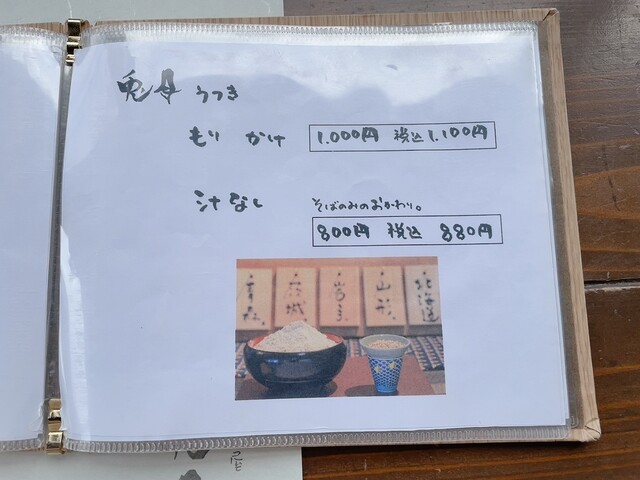 兎月 うつき
もり かけ 1.000円 税込 1.100円
汁なし そばのみのおかわり。
800円 税込 880円
青森 茨城 岩手 山形 北海道
屋